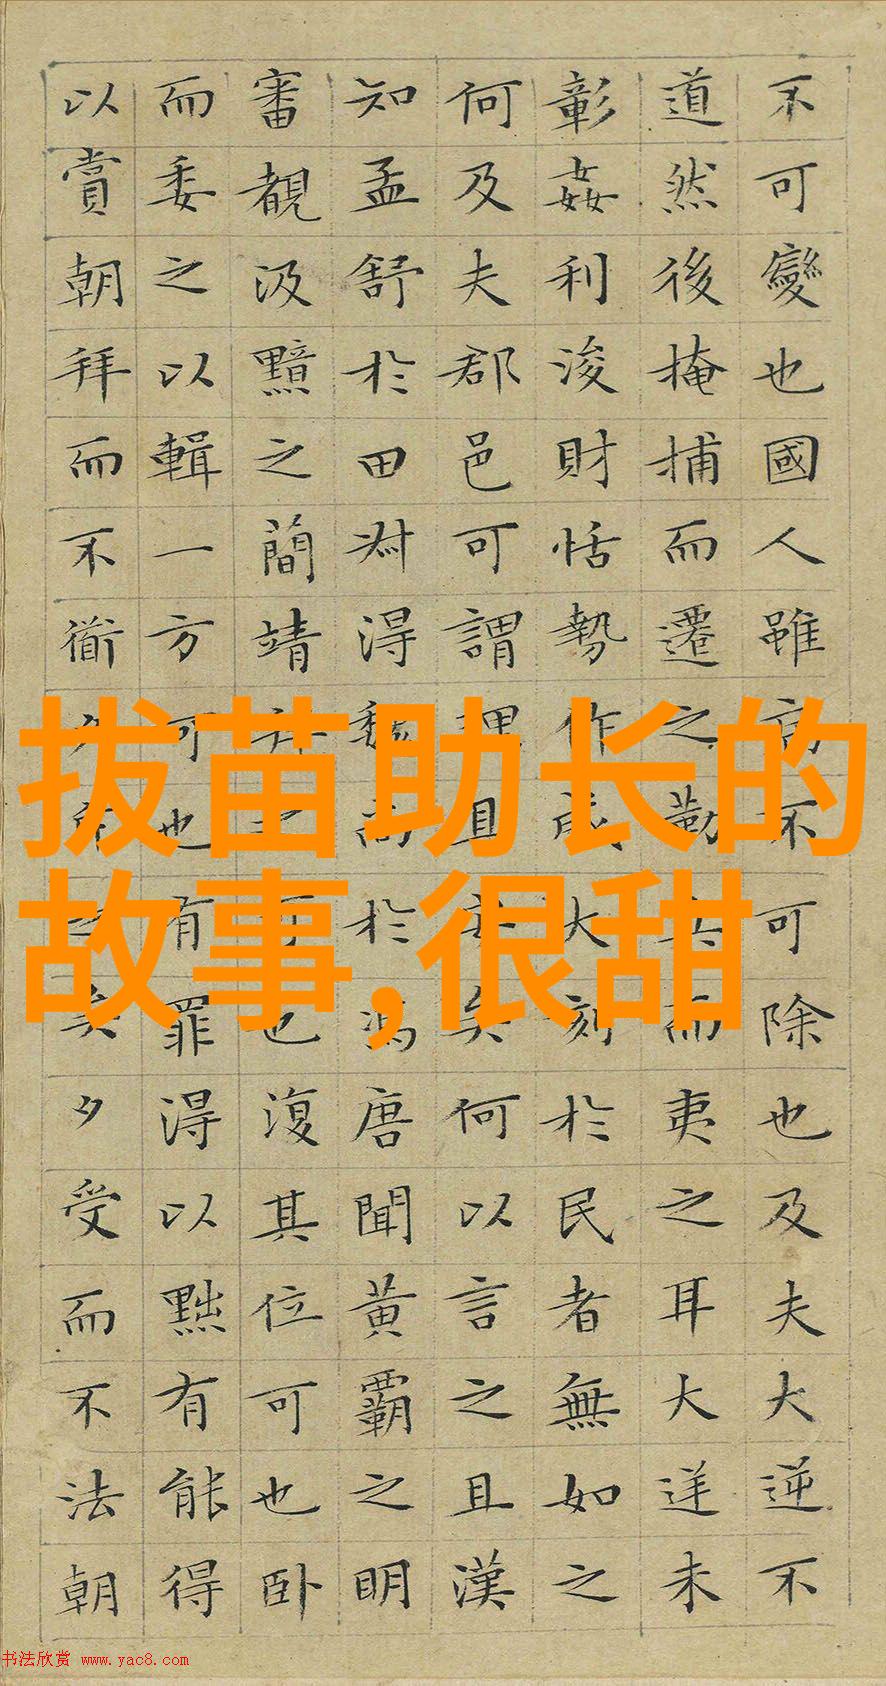 不可變也國人雖不可除也及夫大逆不
道然後掩捕而遷之勤而夷之耳大逆未
彰姦利浚財恬勢作威大刻於民者無如之
何及夫郡邑可謂理且矣何以言之且漢
知孟舒於田叔得魏尚於馮唐聞黃霸之明
審覩汲黯之簡靖拜之可也復其位可也卧
而委之以輯一方可也有罪得以黜有能得
以賞朝拜而不衜夕矣夕受而不法朝
拔苗助长的
故事,很甜
书法欣赏 www.yac8.com